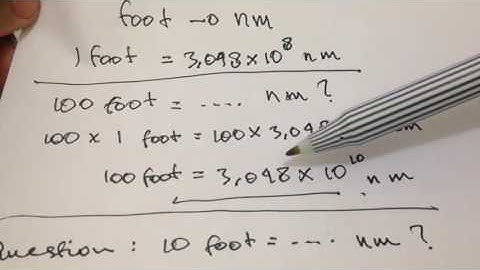 foot → nm
1 foot = 3,048 × 10⁸ nm
100 foot = ..... nm ?
100 × 1 foot = 100 × 3,048 nm
100 foot = 3,048 × 10¹⁰ nm
Question : 10 foot = ..... nm ?